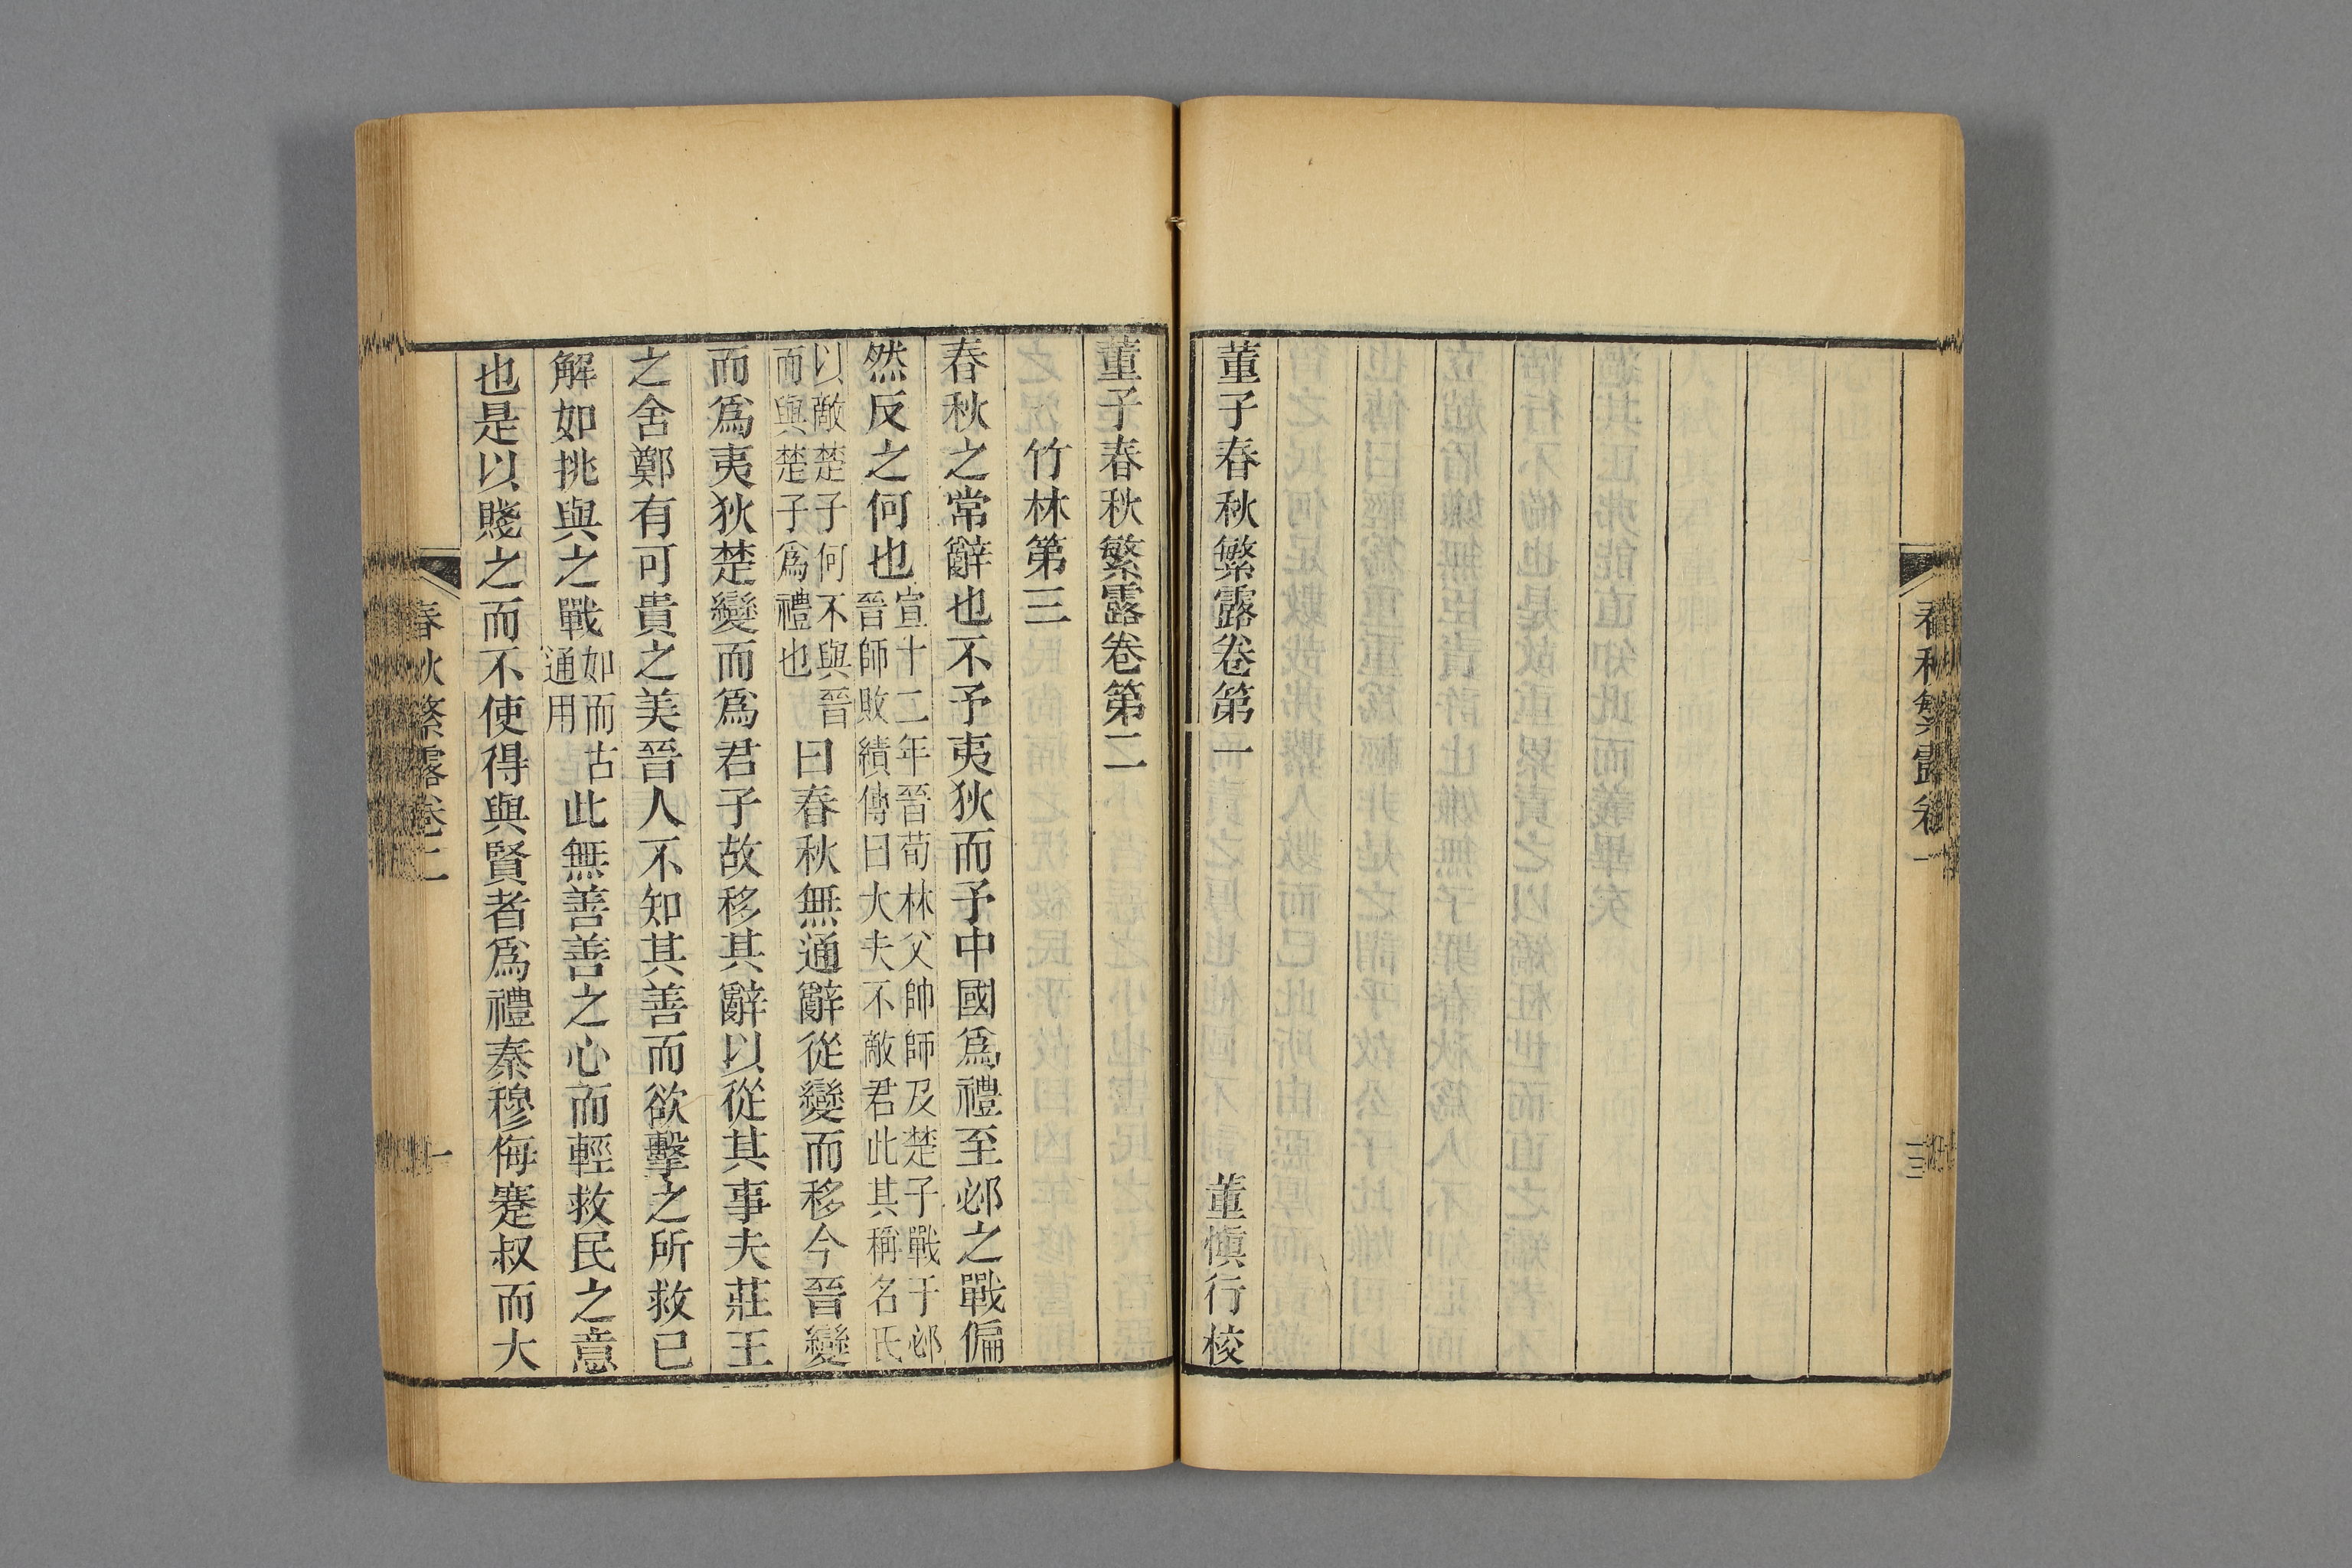 春秋繁露卷一
董子春秋繁露卷第一
董愼行校
董子春秋繁露卷第二
竹林第三
春秋之常辭也不予夷狄而予中國爲禮至邲之戰偏
然反之何也宣十二年晉荀林父帥師及楚子戰于邲晉師敗績傳曰大夫不敵君此其稱名氏
以敵楚子何不與晉而與楚子爲禮也曰春秋無通辭從變而移今晉變
而爲夷狄楚變而爲君子故移其辭以從其事夫莊王
之舍鄭有可貴之美晉人不知其善而欲擊之所救已
解如挑與之戰如而古通用此無善善之心而輕救民之意
也是以賤之而不使得與賢者爲禮秦穆侮蹇叔而大
春秋繁露卷二
一